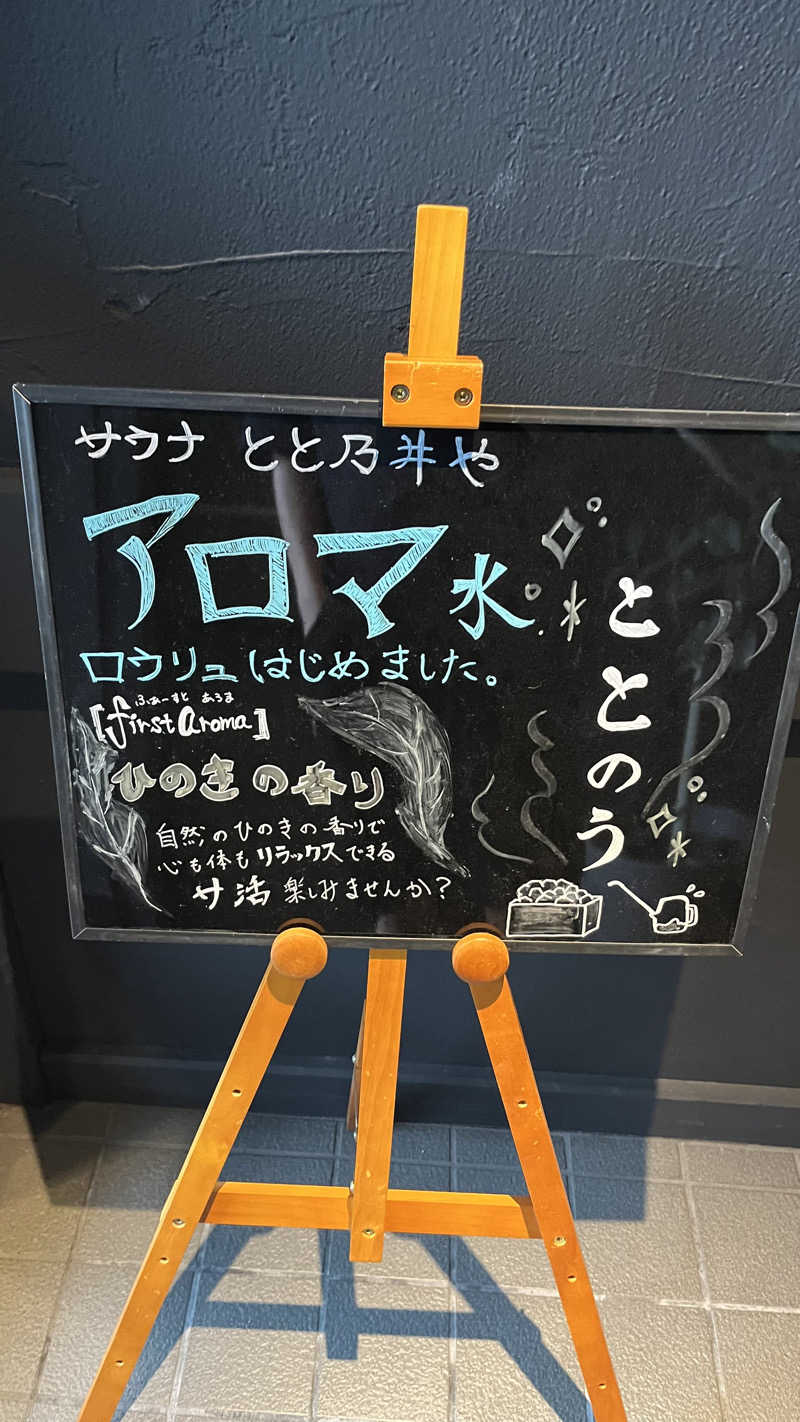 サウナ とと乃井や
アロマ水
ロウリュはじめました。
ふぁーすと あろま
[first aroma]
ひのきの香り
自然のひのきの香りで
心も体もリラックスできる
サ活 楽しみませんか?
ととのう